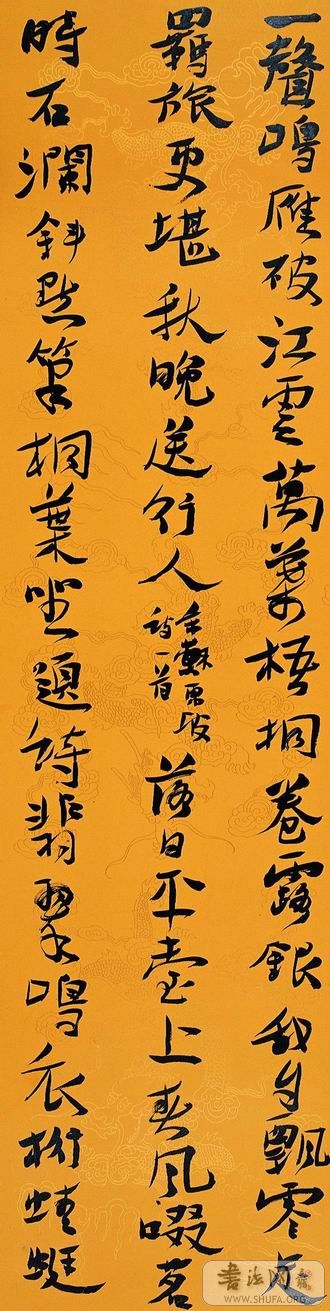 一聲鳴雁破江雲萬葉梧桐卷露銀我自飄零足
羈旅更堪秋晚送行人录蘇東坡詩一首落日平臺上春風啜茗
時石瀾斜點筆桐葉坐題詩翡翠鳴衣桁蜻蜓
书法网
WWW.SHUFA.ORG